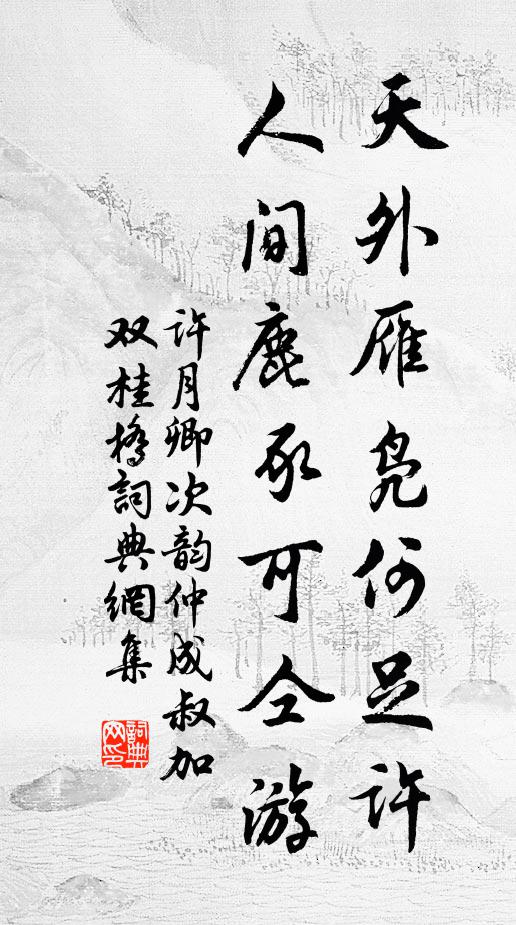 天外雁凫何足许
人间鹿豕可仝游
许月卿次韵仲成叔加
双桂桥詞典網集
詞典
网印